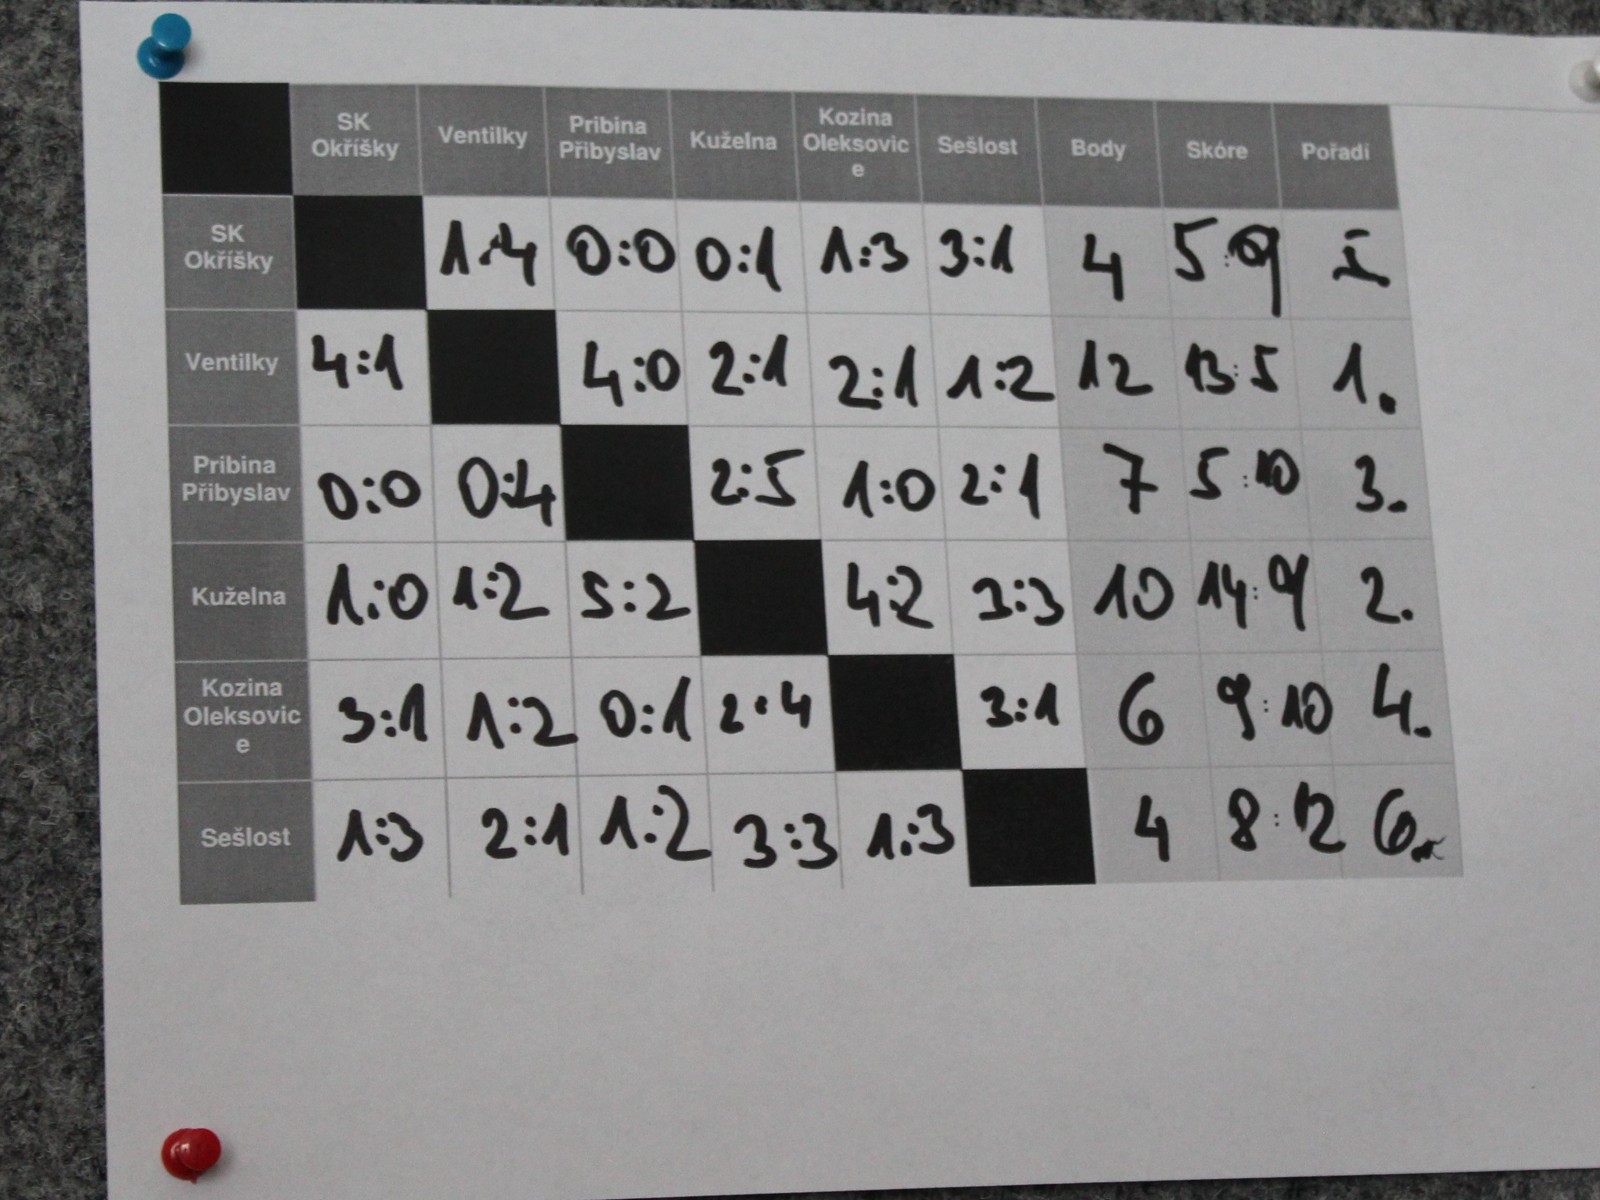 SK Okříšky Ventilky Pribina Přibyslav Kuželna Kozina Oleksovice Sešlost Body Skóre Pořadí
SK Okříšky 1:4 0:0 0:1 1:3 3:1 4 5:9
Ventilky 4:1 4:0 2:1 2:1 1:2 12 13:5 1.
Pribina Přibyslav 0:0 0:4 2:5 1:0 2:1 7 5:10 3.
Kuželna 1:0 1:2 5:2 4:2 3:3 10 14:9 2.
Kozina Oleksovice 3:1 1:2 0:1 2:4 3:1 6 9:10 4.
Sešlost 1:3 2:1 1:2 3:3 1:3 4 8:12 6.